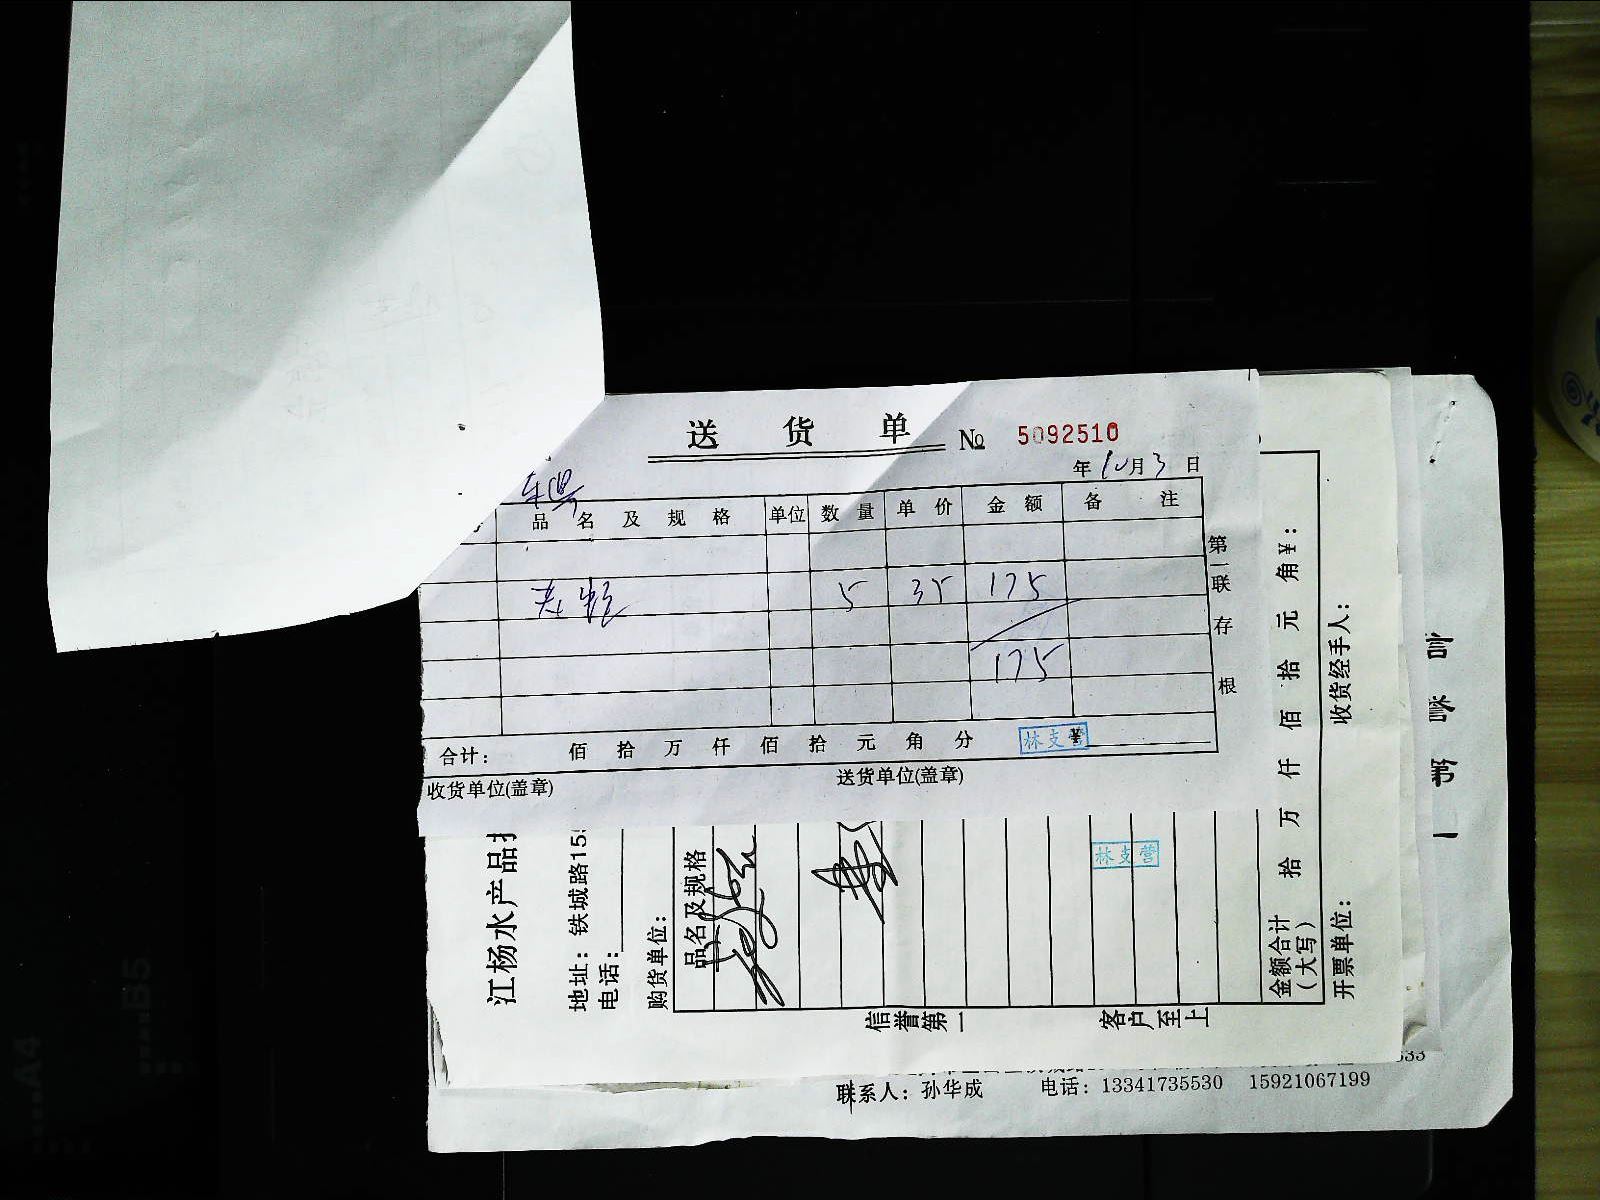 送 货 单 № 5092510
年 10月 3 日
品 名 及 规 格 单位 数 量 单 价 金 额 备 注
5 35 175
175
合计： 佰 拾 万 仟 佰 拾 元 角 分 林支营
收货单位(盖章) 送货单位(盖章)
第一联存根
江杨水产品
地址：铁城路15
电话：
购货单位：
品名及规格
林支营
金额合计（大写） 拾 万 仟 佰 拾 元 角¥：
开票单位： 收货经手人：
信誉第一 客户至上
联系人：孙华成 电话：13341735530 15921067199
A4
B5